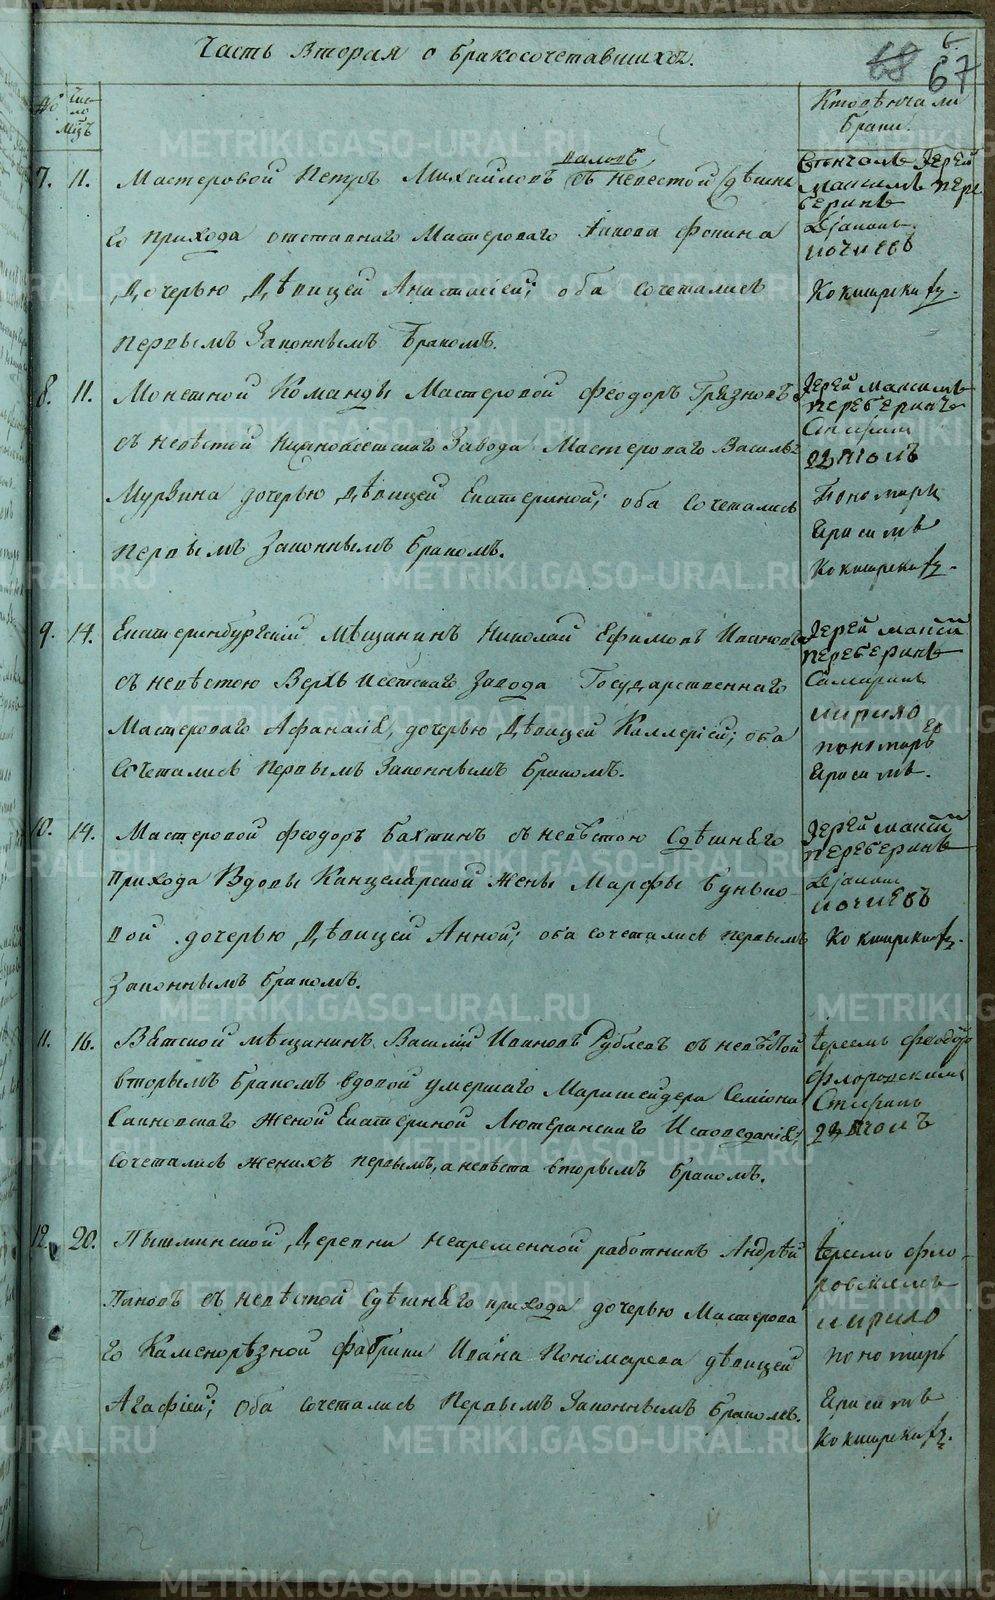 Часть Вторая о бракосочетавшихся.
68 67
№ Чис
ло
Мцъ
Кто вѣнчали
браки.
7. 11. Мастеровой Петръ Михайловъ съ невестой Сдѣшня
го прихода отставнаго Мастероваго Фокина
Дочерью Дѣвицей Анастасіей; оба сочетались
первымъ Законнымъ бракомъ.
Іерей
Максимъ
Кокшарски
8. 11. Монетной Команды Мастеровой Феодоръ Грязновъ
съ невѣстой Нижноисетскаго Завода Мастероваго Василья
Мурзина дочерью Дѣвицей Екатериной; оба Сочетались
Первымъ Законнымъ бракомъ.
Іерей Максимъ
Переберинъ
Пономарь
Герасимъ
Кокшарски
9. 14. Екатеринбургскій Мѣщанинъ Николай Ефимовъ Ивановъ
съ невѣстою Верхъ Исетскаго Завода Государственнаго
Мастероваго Афанасія, дочерью Дѣвицей Каллеріей; оба
Сочетались Первымъ Законнымъ бракомъ.
Іерей
Переберинъ
Кирило
пономарь
Герасимъ.
10. 14. Мастеровой Феодоръ Бахтинъ съ невѣстою Сдѣшняго
Прихода Вдовы Канцелярской Жены Марфы Бунько
вой дочерью Дѣвицей Анной; оба сочетались первымъ
Законнымъ бракомъ.
Іерей
Переберинъ
Кокшарски
11. 16. Вятской мѣщанинъ Василій Ивановъ Рублевъ съ невѣстой
вторымъ бракомъ вдовой умершаго Маркшейдера Семіона
женой Екатериной Лютеранскаго Исповеданія;
Сочетались женихъ первымъ, а невѣста вторымъ бракомъ.
Іереемъ Феодор
Флоровскимъ
12. 20. Пышминской Деревни непременной работникъ Андрѣй
Пановъ съ невѣстой Сдѣшняго прихода дочерью Мастерова
го Каменорѣзной фабрики Ивана Пономарева дѣвицей
Агафіей; оба сочетались Первымъ Законнымъ бракомъ.
Іереемъ Фло
ровскимъ
Кирило
пономарь
Герасимъ
Кокшарски
METRIKI.GASO-URAL.RU